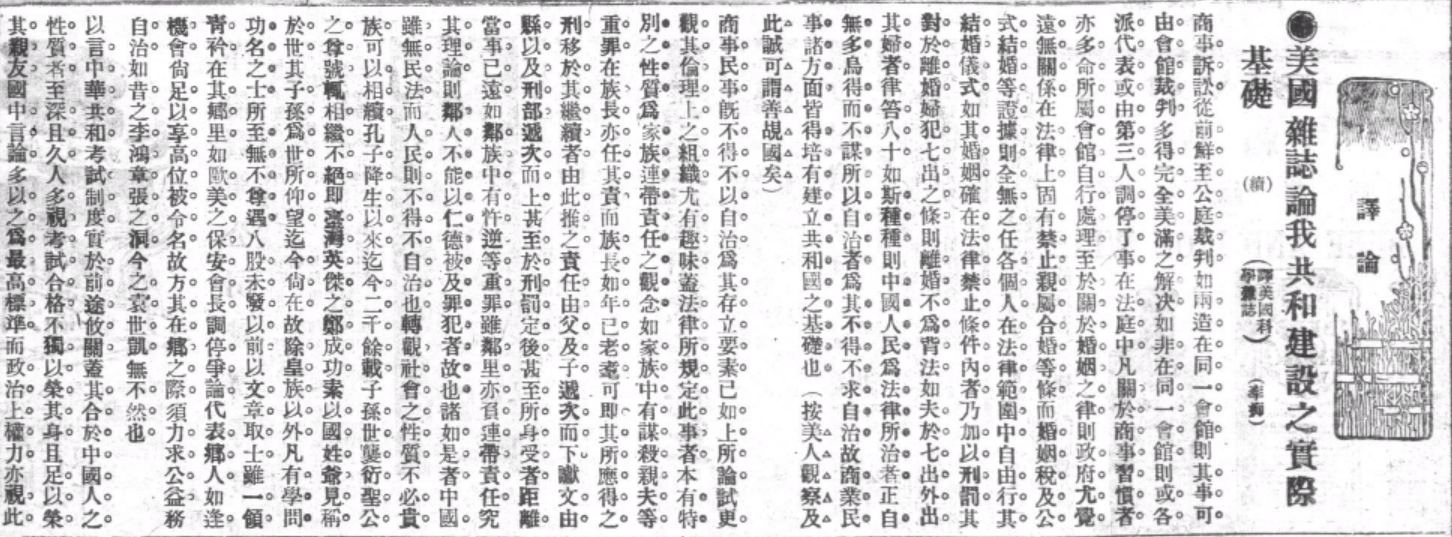 譯論
●美國雜誌論我共和建設之實際
基礎 (續) (譯美國科學雜誌)
商事訴訟從前鮮至公庭裁判如兩造在同一會館則其事可
由會館裁判多得完全美滿之解决如非在同一會館則或各
派代表或由第三人調停了事在法庭中凡關於商事習慣者
亦多命所屬會館自行處理至於關於婚姻之律則政府尤覺
遠無關係在法律上固有禁止親屬合婚等條而婚姻稅及公
式結婚等證據則全無之任各個人在法律範圍中自由行其
結婚儀式如其婚姻確在法律禁止條件內者乃加以刑罰其
對於離婚婦犯七出之條則離婚不爲背法如夫於七出外出
其婦者律笞八十如斯種種則中國人民爲法律所治者正自
無多烏得而不謀所以自治者爲其不得不求自治故商業民
事諸方面皆得培有建立共和國之基礎也(按美人觀察及
此誠可謂善覘國矣)
商事民事旣不得不以自治爲其存立要素已如上所論試更
觀其倫理上之組織尤有趣味蓋法律所規定此事者本有特
別之性質爲家族連帶責任之觀念如家族中有謀殺親夫等
重罪在族長亦任其責而族長如年已老耄可即其所應得之
刑移於其繼續者由此推之責任由父及子遞次而下讞文由
縣以及刑部遞次而上甚至於刑罰定後甚至所身受者距離
當事已遠如鄰族中有忤逆等重罪雖鄰里亦負連帶責任究
其理論則鄰人不能以仁德被及罪犯者故也諸如是者中國
雖無民法而人民則不得不自治也轉觀社會之性質不必貴
族可以相續孔子降生以來迄今二千餘載子孫世襲衍聖公
之尊號輒相繼不絕即臺灣英傑之鄭成功素以國姓爺見稱
於世其子孫爲世所仰望迄今尙在故除皇族以外凡有學問
功名之士所至無不尊遇八股未發以前以文章取士雖一領
靑衿在其鄉里如歐美之保安會長調停爭論代表鄉人如逢
機會尙足以享高位被令名故方其在鄉之際須力求公益務
自治如昔之李鴻章張之洞今之袁世凱無不然也
以言中華共和考試制度實於前途攸關蓋其合於中國人之
性質者至深且久人多視考試合格不獨以榮其身且足以榮
其親友國中言論多以之爲最高標準而政治上權力亦視此